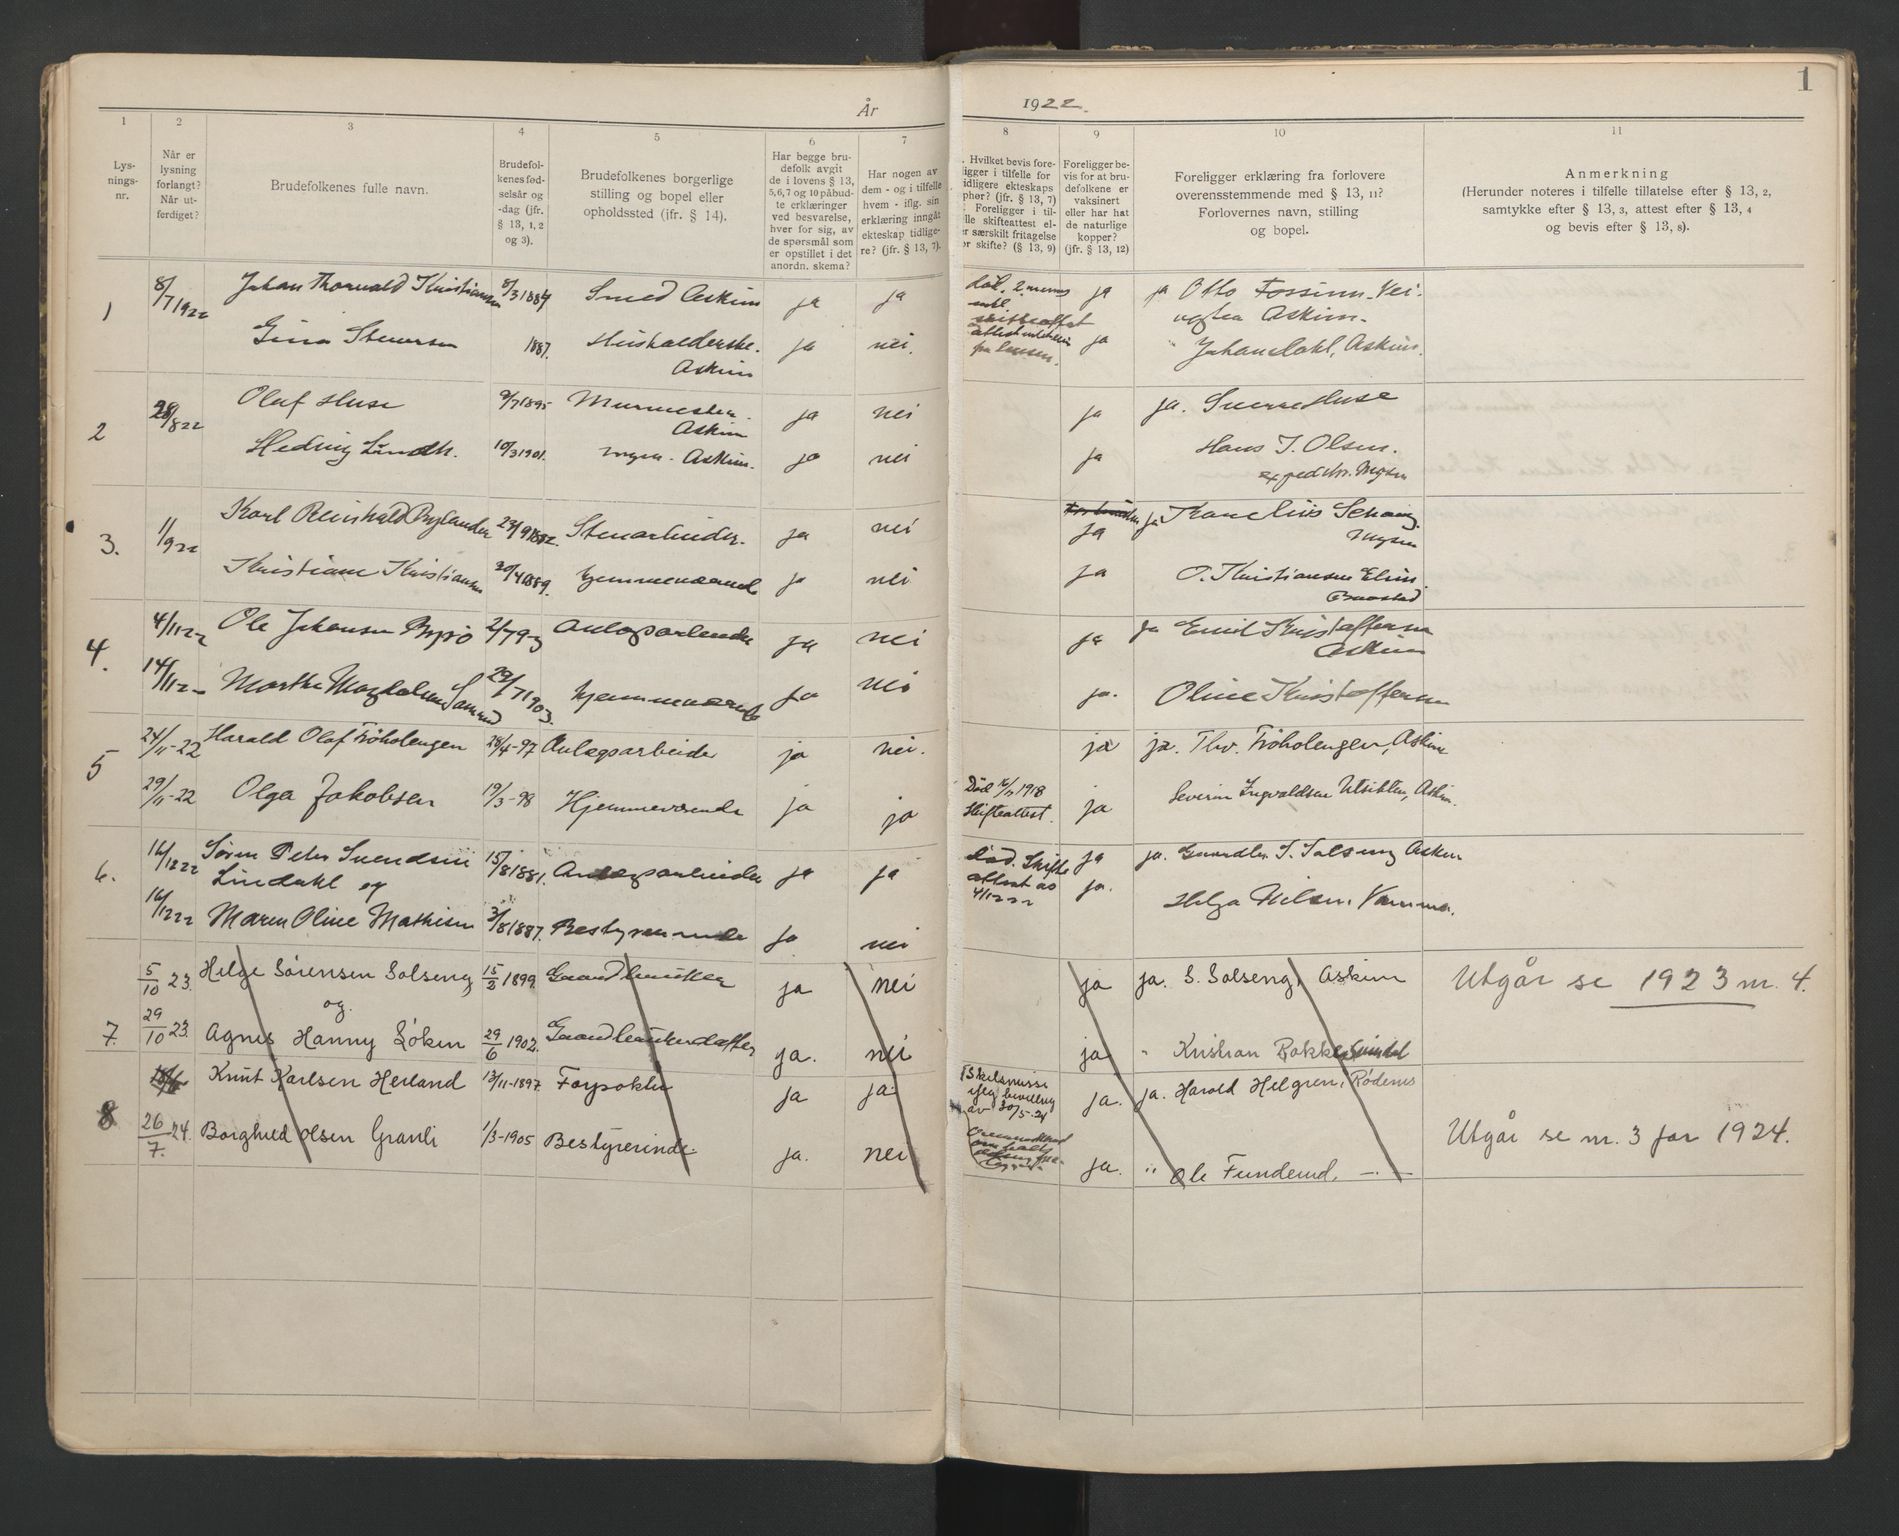 1
År 1922.
1 2 3 4 5 6 7 8 9 10 11
Lys-
nings-
nr.
Når er
lysning
forlangt?
Når ut-
ferdiget?
Brudefolkenes fulle navn.
Brudefol-
kenes fød-
selsår og
-dag (jfr.
§ 13, 1, 2
og 3).
Brudefolkenes borgerlige
stilling og bopel eller
opholdssted (jfr. § 14).
Har begge bru-
defolk avgit
de i lovens § 13,
5,6,7 og 10 påbud-
te erklæringer
ved besvarelse,
hver for sig, av
de spørsmål som
er opstillet i det
anordn. skema?
Har nogen av
dem - og i tilfelle
hvem - iflg. sin
erklæring inngåt
ekteskap tidlige-
re? (jfr. § 13, 7).
Hvilket bevis fore-
ligger i tilfelle for
tidligere ekteskaps
ophør? (jfr. § 13, 7)
Foreligger i til-
felle skifteattest el-
er særskilt fritagelse
for skifte? (§ 13, 9)
Foreligger be-
vis for at bru-
defolkene er
vaksinert
eller har hat
de naturlige
kopper?
(jfr. § 13, 12)
Foreligger erklæring fra forlovere
overensstemmende med § 13, 11?
Forlovernes navn, stilling
og bopel.
Anmerkning
(Herunder noteres i tilfelle tillatelse efter § 13, 2,
samtykke efter § 13, 3, attest efter § 13, 4
og bevis efter § 13, 8).
1 8/7 1922 Johan Thorvald Kristiansen 8/3 1884 Smed Askim ja ja ja ja Otto Fossum Vei-
vogter Askim.
Gina Stenersen 1887. Husholderske. ja nei. ja " Johan Dahl, Askim.
Askim
2 28/8 22 Olaf Huse 9/7 1895 Murmester. ja nei ja ja. Sverre Huse
Askim
Hedvig Lindh. 10/3 1901. ingen. Askim. ja nei ja Hans J. Olsen.
Mysen
3. 1/9 22 Karl Reinhold Rylander 23/9 1882. Stenarbeider. ja nei ja ja Kornelius
Mysen
Kristiane Kristiansen 20/4 1889. hjemmeværende ja nei ja O. Kristiansen
4. 4/11 22 Ole Johansen Bysjø 2/7 93 Anlegsarbeider ja nei ja ja Emil Kristoffersen
Askim
14/11 22 Marthe Magdalene 29/7 1903. hjemmeværende ja nei ja. Oline Kristoffersen
5 24/11-22 Harald Olaf Frøholengen 28/4-97 Anlegsarbeider ja nei. ja ja. Thv. Frøholengen, Askim
29/11-22 Olga Jakobsen 19/3-98 Hjemmeværende ja ja Død 1918 ja Severin Ingvaldsen Utsikten, Askim.
Skifteattest.
6. 16/12 22 Søren Peter Svendsen 15/8 1881. Anlegsarbeider ja ja død. Skifte ja ja. Gaardbr. S. Solseng Askim
Lindahl og attest av ja.
4/12 22
16/12 22 Maren Oline Mathisen 3/8 1887. Bestyrerinde ja nei Helga Nilsen, Vamma.
5/10 23. Helge Sørensen Solseng 15/2 1899 Gaardbruker ja nei ja ja. S. Solseng, Askim Utgår se 1923 nr. 4.
og
7. 29/10 23. Agnes Hanny Løken 29/6 1902. Gaardbrukerdatter ja. nei ja " Kristian Rakkestad
Knut Karlsen Heiland 13/11-1897 Forpakter ja ja Skilsmisse ja. ja. Harald Helgren, Rødenes
iflg. bevilling
av 30/5-24
8 26/7.24. Borghild Olsen Granli 1/3-1905 Bestyrerinde ja. nei ja. " Ole Funderud, — Utgår se nr. 3 for 1924.